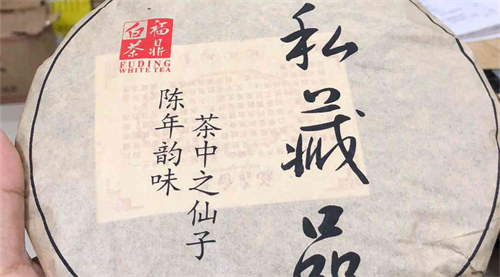 福鼎
白茶
FUDING
WHITE TEA
私藏品
陈年韵味
茶中之仙子